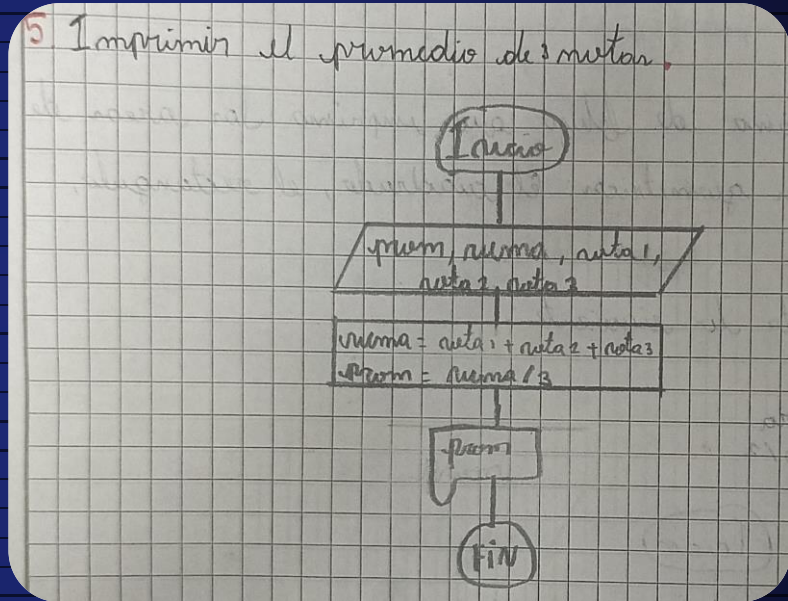 5 Imprimir el promedio de 3 notas.
Inicio
prom, suma, nota1,
nota2, nota3
suma = nota1 + nota2 + nota3
prom = suma / 3
prom
FiN